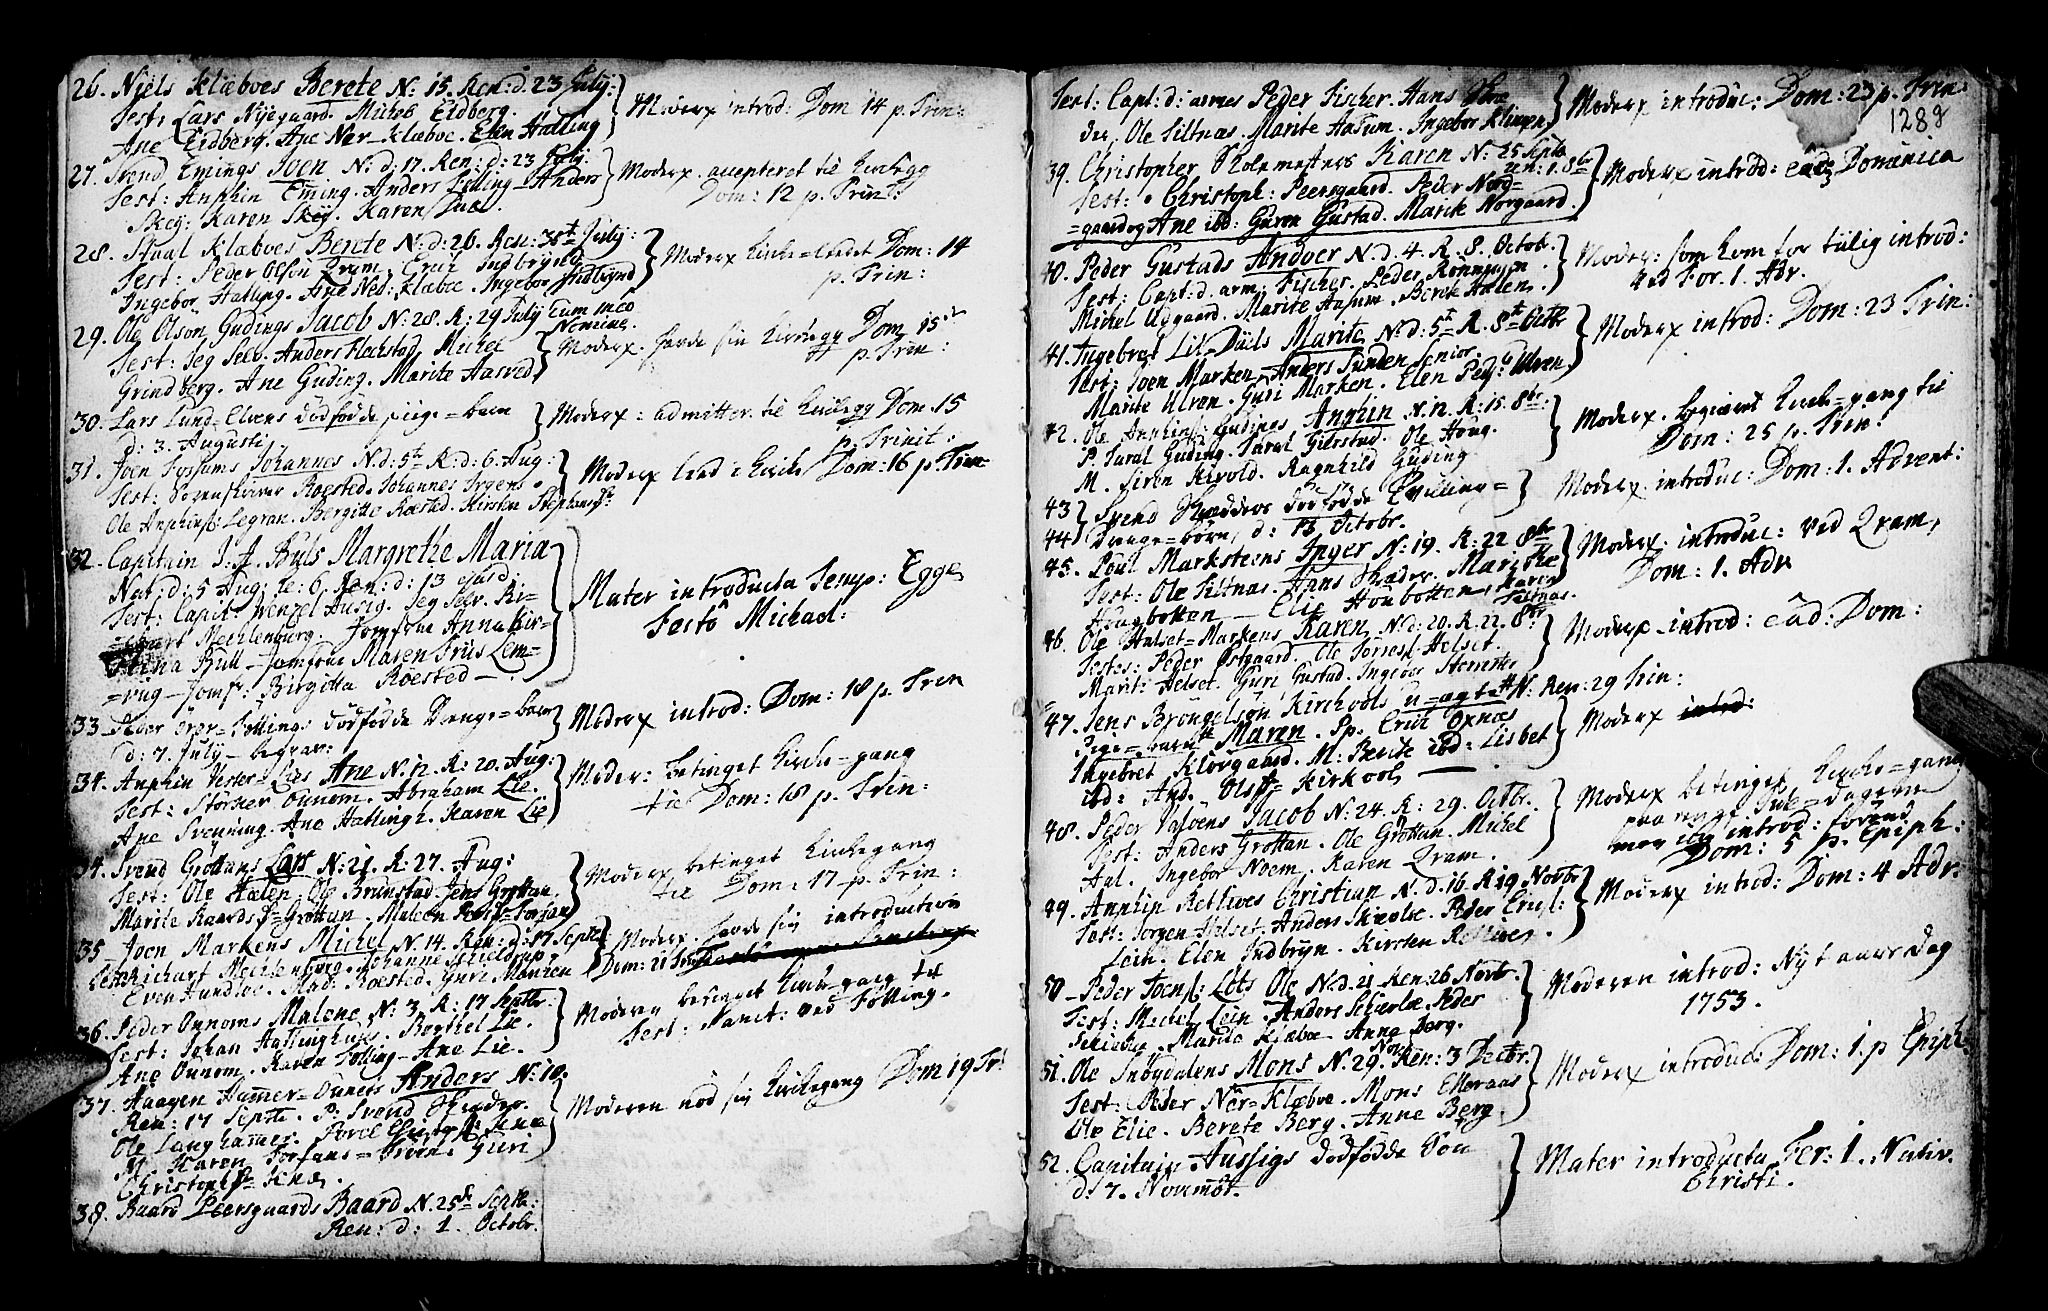 26. Niels Klæboes Berete N: 15. Ren: d. 23 Julij:
Test: Lars Nijegaard. Michel Eidberg.
Ane Eidberg. Ane Ner-Klæboe. Elen Hatling
Moderx introd: Dom 14 p. Trin:
27. Svend Emings Joen N: d: 17. Ren: d: 23 Julij:
Test: Anphin Eming. Anders Anders
Skeij: Karen Skeij. Karen
Moderx. accepteret til Kirkegg
Dom: 12 p. Trin:
28. Klæboes Berete N: d: 26. Ren: 30te Julij:
Test: Peder Olson Qvam. Erich Indbrijnd
Ingebor Hatling. Ane Ned: Klæboe. Ingebor Indbrijnd
Moderx Kirke=leedet Dom: 14
p. Trin:
29. Ole Olson Gudings Jacob N: 28. R: 29 Julij Cum
Nomine.
Test: Jeg Selv. Anders Flechstad. Michel
Grindberg. Ane Guding. Marite Aasved
Moderx. havde sin Kirkegg Dom 15
p. Trin:
30. Lars Lund-Elvens dødfødde piige=barn
d: 3. Augusti
Moderx: admitter. til Kirkegg Dom. 15
p. Trinit:
31. Joen Fossums Johannes N. d: 5te R: d: 6. Aug:
Test: Sorenskriver Roested. Johannes Irgens.
Ole Anphinss: Legran. Bergitte Roested. Kirsten
Moderx leed i Kirke Dom: 16 p. Trin
32. Capitain J: F. Buls Margrethe Maria
Nat: d: 5 Aug: Ren: d: 13 ejusd.
Test: Capit: Wenzel Ausig. Jeg Selv. Ri=
Mechlenburg. Jomfrue Anna Kir=
stina Bull - Jomfrue Maren Friis Lem=
=vug - Jomfr: Birgitta Roested -
Mater introducta Temp: Egge
Festô Michael:
33. Peder over-Følling: dødfødde Drænge=barn
d: 7. Julij - begrav:
Moderx introd: Dom: 18 p. Trin
34. Anphin Vester=Lies Ane N: 12 R: 20. Aug:
Test: Storker Ounom. Abraham Lie.
Ane Svenning. Ane Hallingh. Karen Lie
Moder: betinget Kirke=gang
til Dom: 18 p. Trin:
34. Svend Grottans Lars N: 21. R: 27. Aug:
Test: Ole Hælen. Ole Brunstad. Jens Grottan
Marite Baards D= Grottan. Maleen
Moderx betinget Kirkegang
til Dom: 17 p. Trin:
35. Joen Markens Michel N. 14. Ren: d: 17 Septbr
Richart Mechlenburg. Johanne Schieldrup.
Even Hundloe. Mad: Roested. Guri Monzen
Moderx. havde sin introduction
Dom: 21
36. Peder Ounoms Malene N: 3. R: 17 Septbr:
Test: Johan Hallinghus. Borthel Lie.
Ane Ounom. Karen Følling - Ane Lie.
Moderen betinget Kirke-gang til
Fest: Sanct: ved Følling.
37. Haagen Hammer=Ouners Anders N: 10.
Ren: 17 Septbr. P: Svend Skreder.
Ole Langhammer. Povel
M: Karen Forfans= Guri
Christophs:
Moderen nød sin Kirkegang Dom 19 Tr:
38. Baard Peersgaards Baard N. 25de Septb:
Ren: d: 1. Octobr.
1288
Test: Capt: d: armes Peder Fischer. Hans Skre
der. Ole Siltnæs. Marite Aasum. Ingebor Klingen
Moderx introduc: Dom: 23 p. Trin:
39. Christopher Skolemesters Karen N: 25 Septb
ren: 1. 8br
Test: Christoph: Peersgaard. Peder Nord=
=gaard og Ane ibd: Guren Gustad. Marite Norgaard.
Moderx introd: eâd Dominica
40. Peder Gustads Andoer N. d. 4. R. 8. Octob.
Test: Capt: d. arm: Fischer. Peder Rønningen
Michel Udgaard. Marite Aasum. Berete Hælen.
Moderx: som kom for tiilig introd:
4ed For. 1. Adv.
41. Ingebret Lil-Duels Marite N: d: 5te R. 8te Octbr
Test: Joen Marken. Anders Sunden Senior.
Marite Ulven. Guri Marken. Elen Ped: Ulven.
Moderx introd: Dom: 23 Trin:
42. Ole Anphins: Gudings Anphin N. 12. R: 15. 8br:
P. Taral Guding. Taral Gilrstad. Ole Houg.
M. Siren Kirvold. Ragnhild Guding.
Moderx. begiæret Kirke=gang til
Dom: 25 p. Trin:
43 } Svend Skredders dødfødde Tvilling=
44 } Drenge=børn, d: 13 Octobr.
Moderx. introduc: Dom: 1. Advent:
45. Poul Marksteens Inger N: 19. R: 22 8br
Test: Ole Siltnæs. Hans Skreder. Marithe
Hougbotten - Elie Houbotten. Karen
Siltnæs.
Moderx. introduc: ved Qvam,
Dom: 1. Adv
46. Ole Halset=Markens Karen - N: d: 20. R. 22. 8br
Testes: Peder Østgaard. Ole Torress: Helset.
Marit: Helset. Guri Gustad. Ingebor
Moderx - introd: eâd: Dom:
47. Jens Brongelson Kirchools u=ægte N: Ren: 29 Trin:
Pige=barn Maren. Pp. Erich Oxnæs
Ingebret Klövgaard. M: Berite ibd: Lisbet
ibd: And. Kirkools
Moderx introd:
48. Peder Vasoens Jacob N: 24. R: 29. Octbr.
Test: Anders Grottan. Ole Grottan. Michel
Aal. Ingebor Noem. Karen Qvam.
Moderx betinget Kirke=gang
Jule=Dagene
men introd: forend
Dom: 5 p. Epiph:
49. Anphin Rettives Christian N. d: 16. R 19 Novbr
Test: Jorgen Helset. Anders Skieelse. Peder Erichs:
Lein. Elen Indbrijn. Kirsten Rettives.
Moderx introd: Dom: 4 Adv.
50. Peder Joens: Lots Ole N: d: 21. Ren: 26 Novbr.
Test: Michel Lein. Anders Peder
Marite Klæboe. Anna Berg.
Moderen introd: Nyt aars Dag
1753.
51. Ole Inbydalens Mons N. 29. Nov Ren: 3 Decbr.
Test: Peder Ner-Klæboe. Mons Elleraas
Ole Elie. Berete Berg. Anne Berg.
Moderx introduc: Dom: 1. p Epiph:
52. Capitain Aussigs dødfødde Son
d: 7. Novembr.
Mater introducta Fer: 1. Nativ.
Christi.